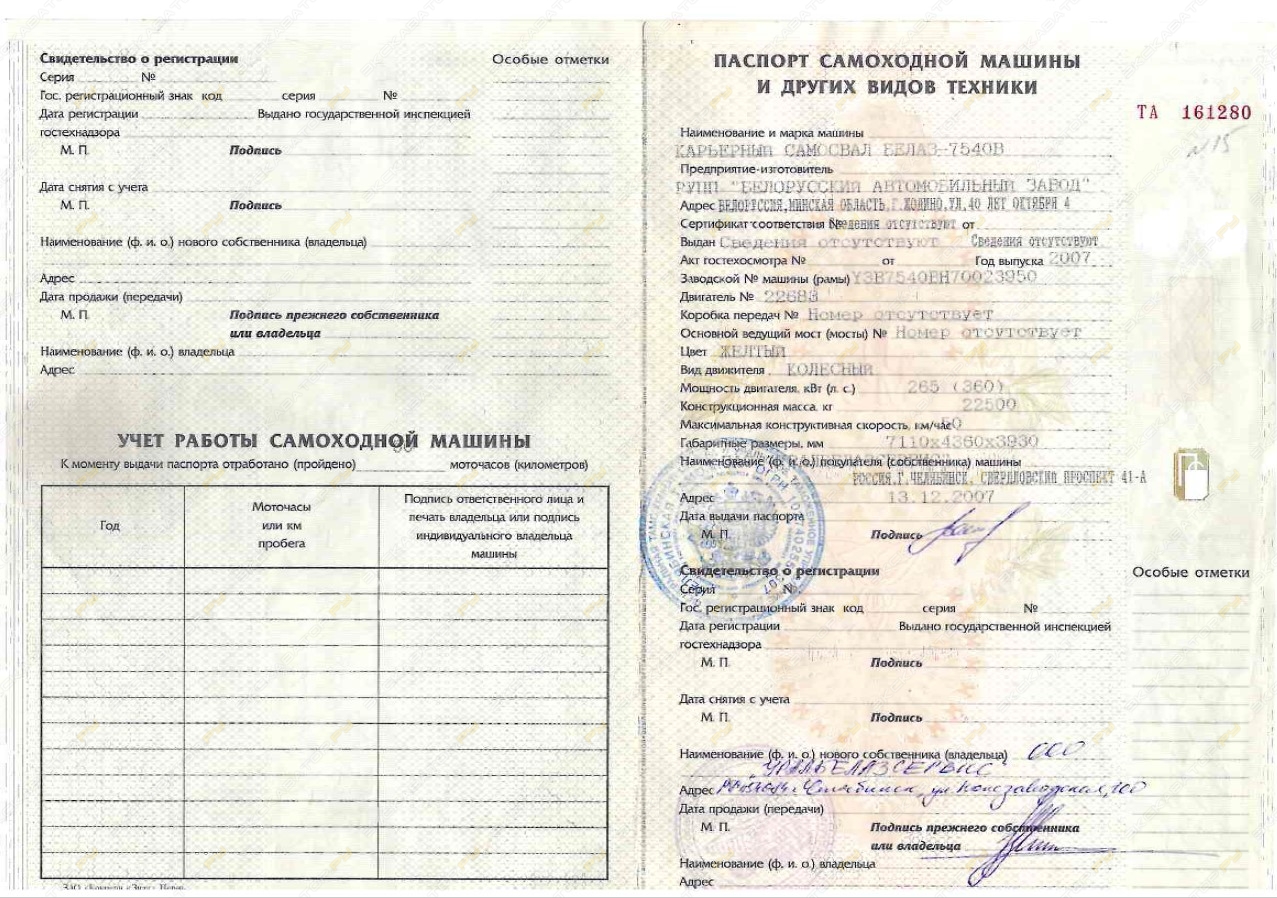 Свидетельство о регистрации
Особые отметки
Серия №
Гос. регистрационный знак код серия №
Дата регистрации Выдано государственной инспекцией
гостехнадзора
М. П. Подпись
Дата снятия с учета
М. П. Подпись
Наименование (ф. и. о.) нового собственника (владельца)
Адрес
Дата продажи (передачи)
М. П. Подпись прежнего собственника
или владельца
Наименование (ф. и. о.) владельца
Адрес
УЧЕТ РАБОТЫ САМОХОДНОЙ МАШИНЫ
К моменту выдачи паспорта отработано (пройдено) моточасов (километров)
Год
Моточасы
или км
пробега
Подпись ответственного лица и
печать владельца или подпись
индивидуального владельца
машины
ПАСПОРТ САМОХОДНОЙ МАШИНЫ
И ДРУГИХ ВИДОВ ТЕХНИКИ
ТА 161280
N 15
Наименование и марка машины
КАРЬЕРНЫЙ САМОСВАЛ БЕЛАЗ-7540В
Предприятие-изготовитель
РУПП "БЕЛОРУССКИЙ АВТОМОБИЛЬНЫЙ ЗАВОД"
Адрес БЕЛОРУССИЯ,МИНСКАЯ ОБЛАСТЬ,Г.ЖОДИНО,УЛ.40 ЛЕТ ОКТЯБРЯ 4
Сертификат соответствия № Сведения отсутствуют от
Выдан Сведения отсутствуют Сведения отсутствуют
Акт гостехосмотра № от Год выпуска 2007
Заводской № машины (рамы) Y3B7540BH70023950
Двигатель № 22683
Коробка передач № Номер отсутствует
Основной ведущий мост (мосты) № Номер отсутствует
Цвет ЖЕЛТЫЙ
Вид движителя КОЛЕСНЫЙ
Мощность двигателя, кВт (л. с.) 265 (360)
Конструкционная масса, кг 22500
Максимальная конструктивная скорость, км/час 50
Габаритные размеры, мм 7110x4360x3930
Наименование (ф. и. о.) покупателя (собственника) машины
РОССИЯ,Г.ЧЕЛЯБИНСК, СВЕРДЛОВСКИЙ ПРОСПЕКТ 41-А
Адрес 13.12.2007
Дата выдачи паспорта
М. П. Подпись
Свидетельство о регистрации
Особые отметки
Серия №
Гос. регистрационный знак код серия №
Дата регистрации Выдано государственной инспекцией
гостехнадзора
М. П. Подпись
Дата снятия с учета
М. П. Подпись
Наименование (ф. и. о.) нового собственника (владельца) ООО
"УРАЛБЕЛАЗСЕРВИС"
Адрес г. Челябинск, ул. Конезаводская, 100
Дата продажи (передачи)
М. П. Подпись прежнего собственника
или владельца
Наименование (ф. и. о.) владельца
Адрес